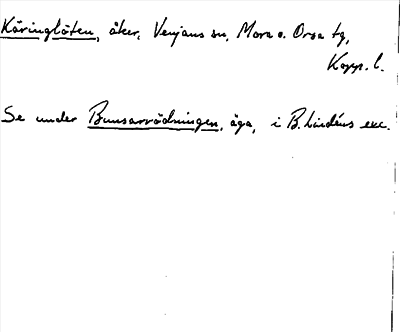 Käringlöten, åker, Venjans sn, Mora o. Orsa tg,
Kopp. l.
Se under Bunsarvödningen, äga, i B. Lindéns exc.